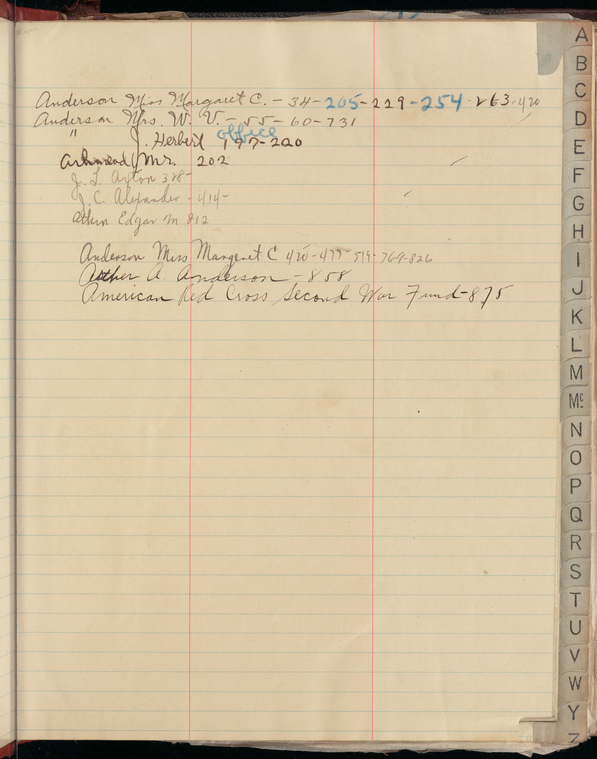 Anderson Miss Margaret C. - 34-205-229-254-263-420
Anderson Mrs. W. V. - 55-60-731
office
" J. Herbert 197-220
Mr. 202
J. L. Ayton 328-
J. C. Alexander - 414-
Edgar M 812
Anderson Miss Margaret C 420-477-519-769-826
A. Anderson - 858
American Red Cross Second War Fund-875
A
B
C
D
E
F
G
H
I
J
K
L
M
Mc
N
O
P
Q
R
S
T
U
V
W
Y
Z